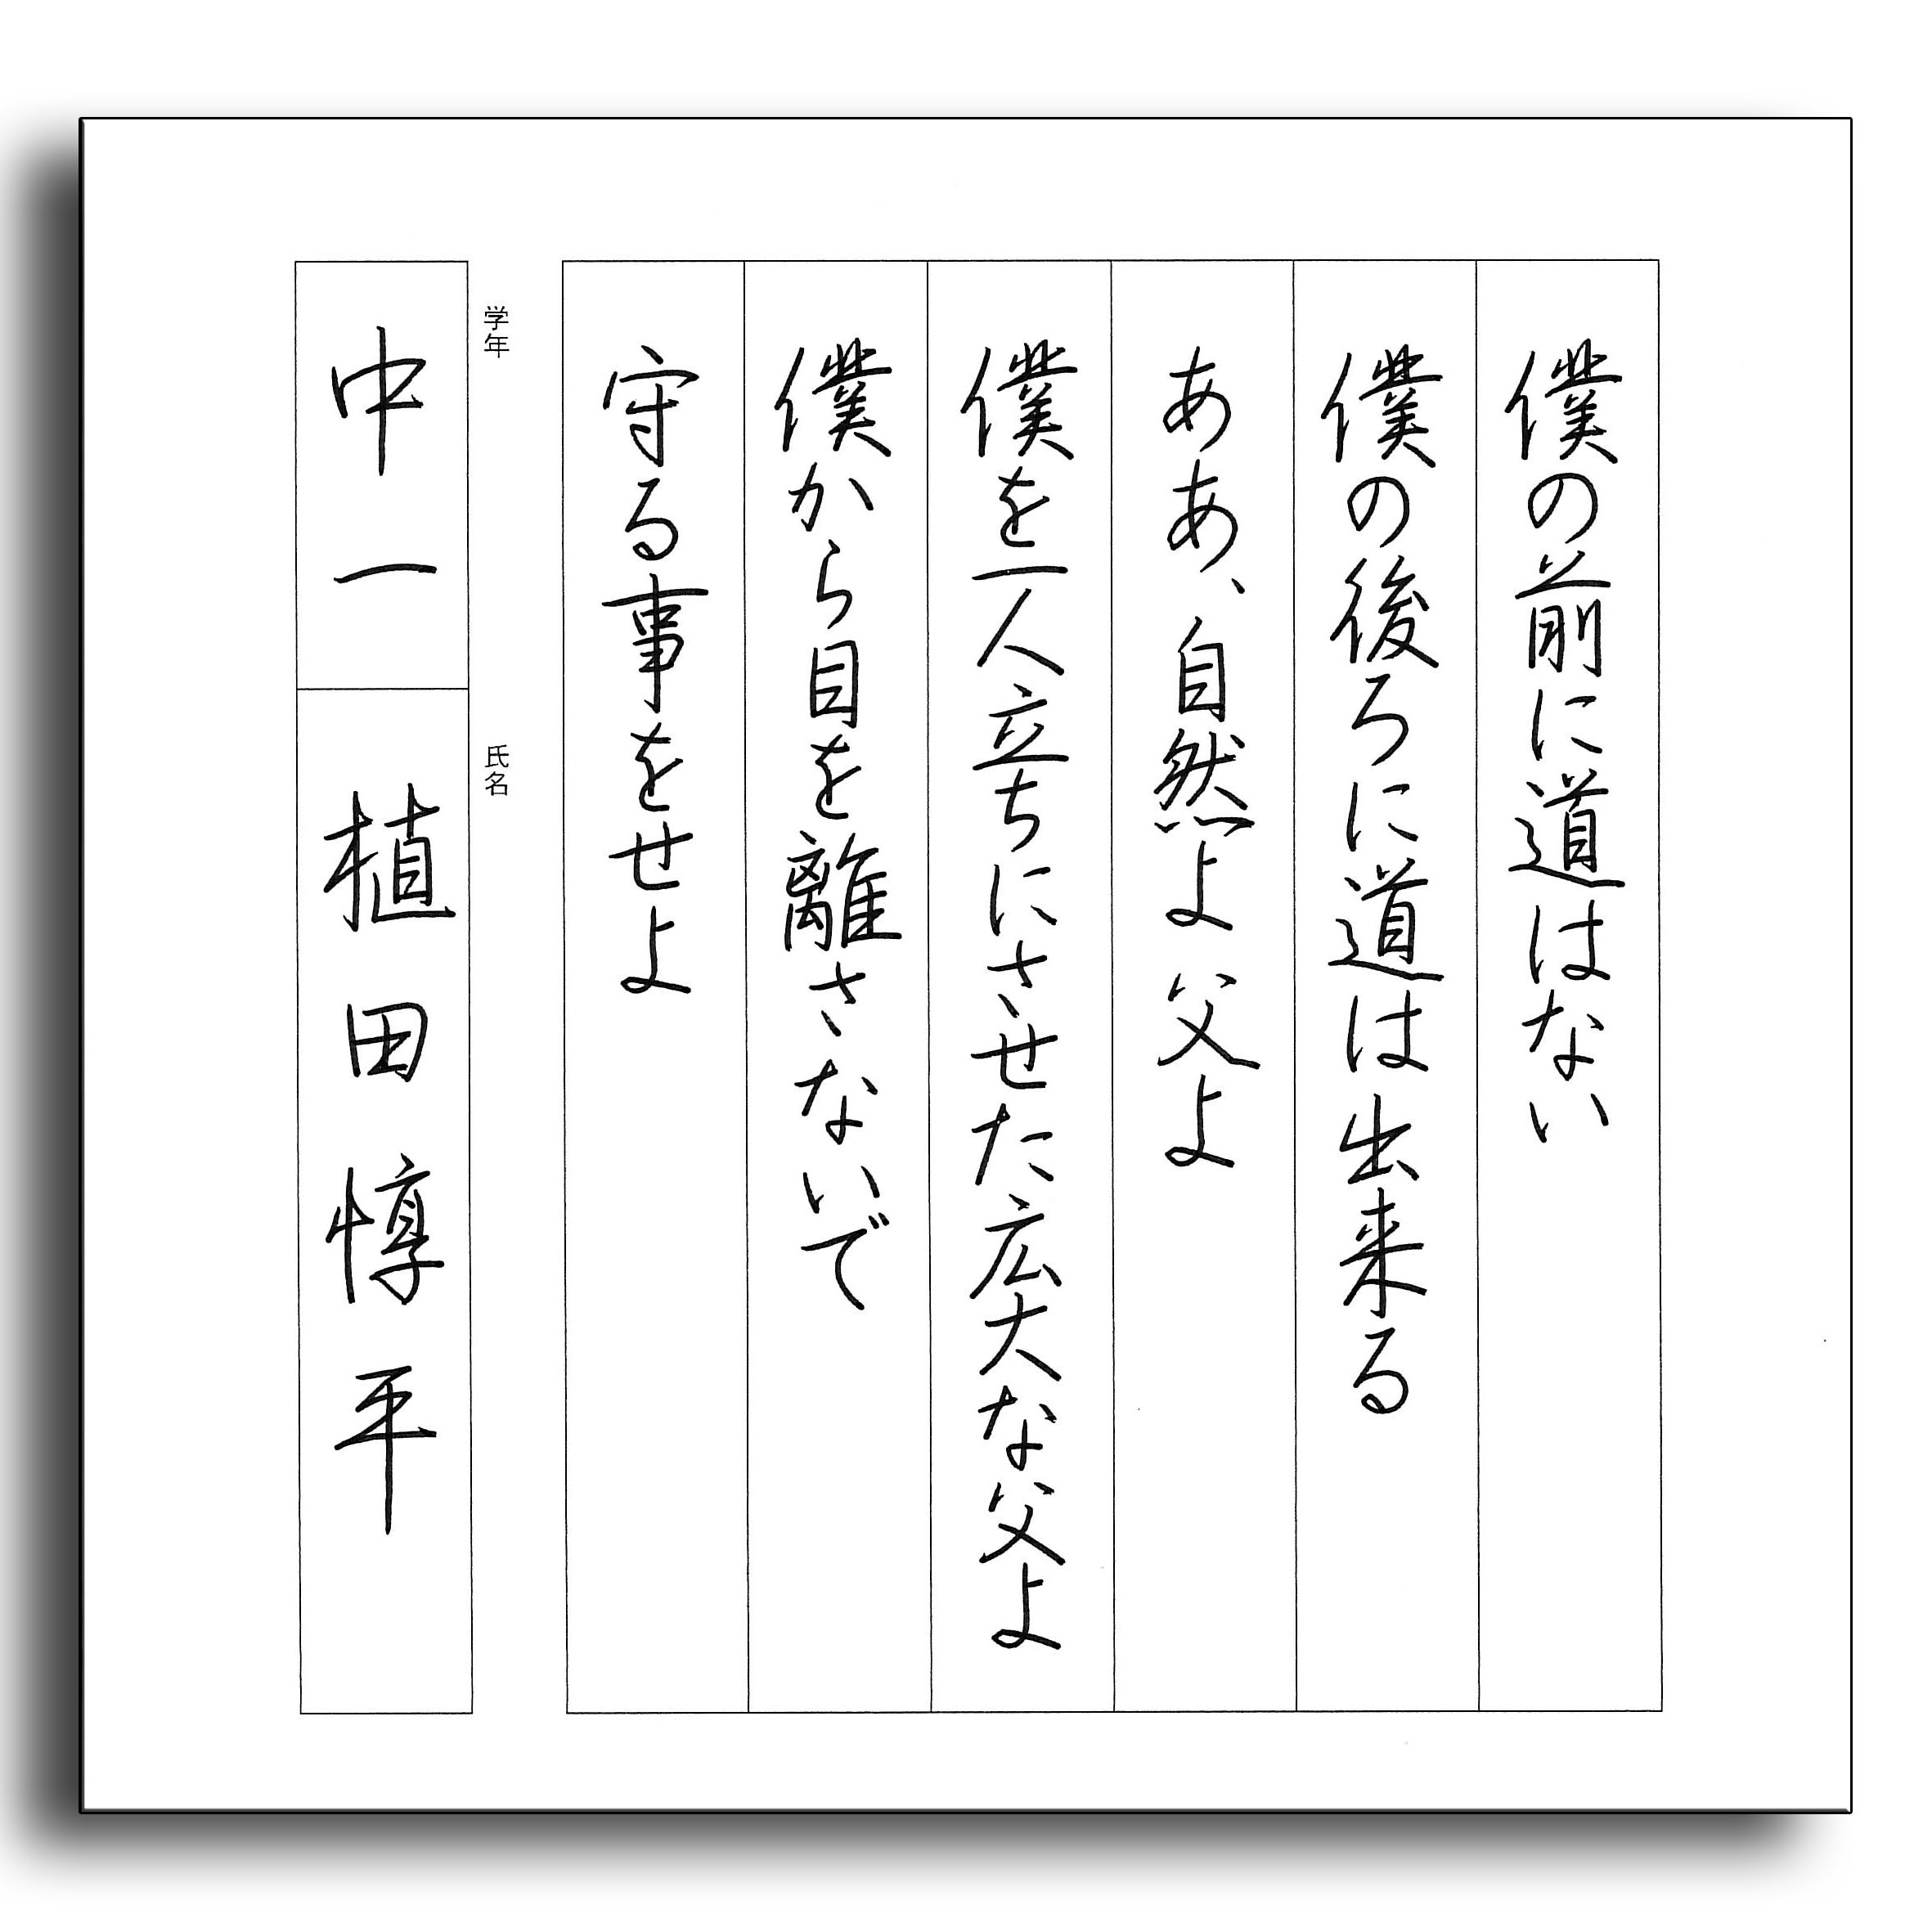 僕の前に道はない
僕の後ろに道は出来る
ああ、自然よ父よ
僕を一人立ちにさせた広大な父よ
僕から目を離さないで
守る事をせよ
学年
中一
氏名
植田惇平